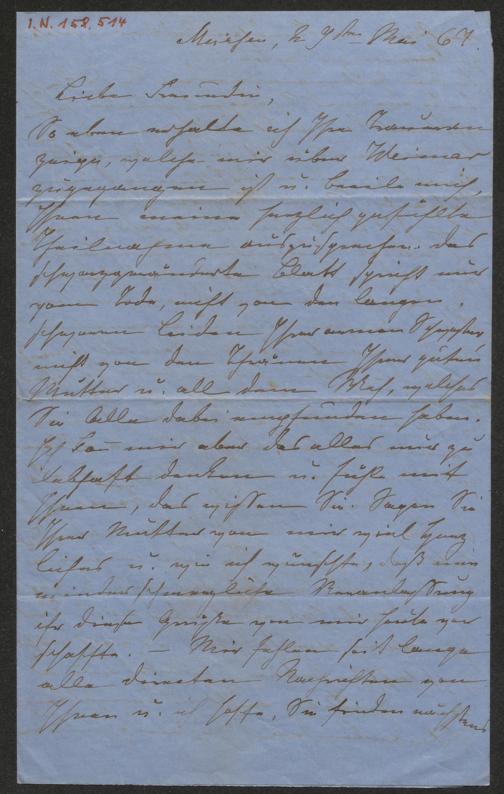 I.N. 158.514
München, d. 9ten Mai 67.
Liebe Freundin,
So eben erhalte ich Ihre Traueran
zeige, welche mir über Weimar
zugegangen ist u. beeile mich,
Ihnen meine herzlich gefühlte
Theilnahme auszusprechen. Das
schwarzgeränderte Blatt spricht nur
vom Tode, nicht von den langen,
schweren Leiden Ihrer armen Schwester
nicht von den Thränen Ihrer guten
Mutter u. all dem Weh, welches
Sie Alle dabei empfunden haben.
Ich kan mir aber das alles nur zu
lebhaft denken u. fühle mit
Ihnen, das wissen Sie. Sagen Sie
Ihrer Mutter von mir viel Herz
liches u. wie ich wünschte, daß eine
minder schmerzliche Veranlassung
ihr diese Grüße von mir heute ver
schaffte. – Mir fehlen seit lange
alle directen Nachrichten von
Ihnen u. ich hoffe, Sie finden nächstens